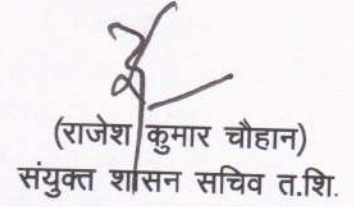 (राजेश कुमार चौहान)
संयुक्त शासन सचिव त.शि.